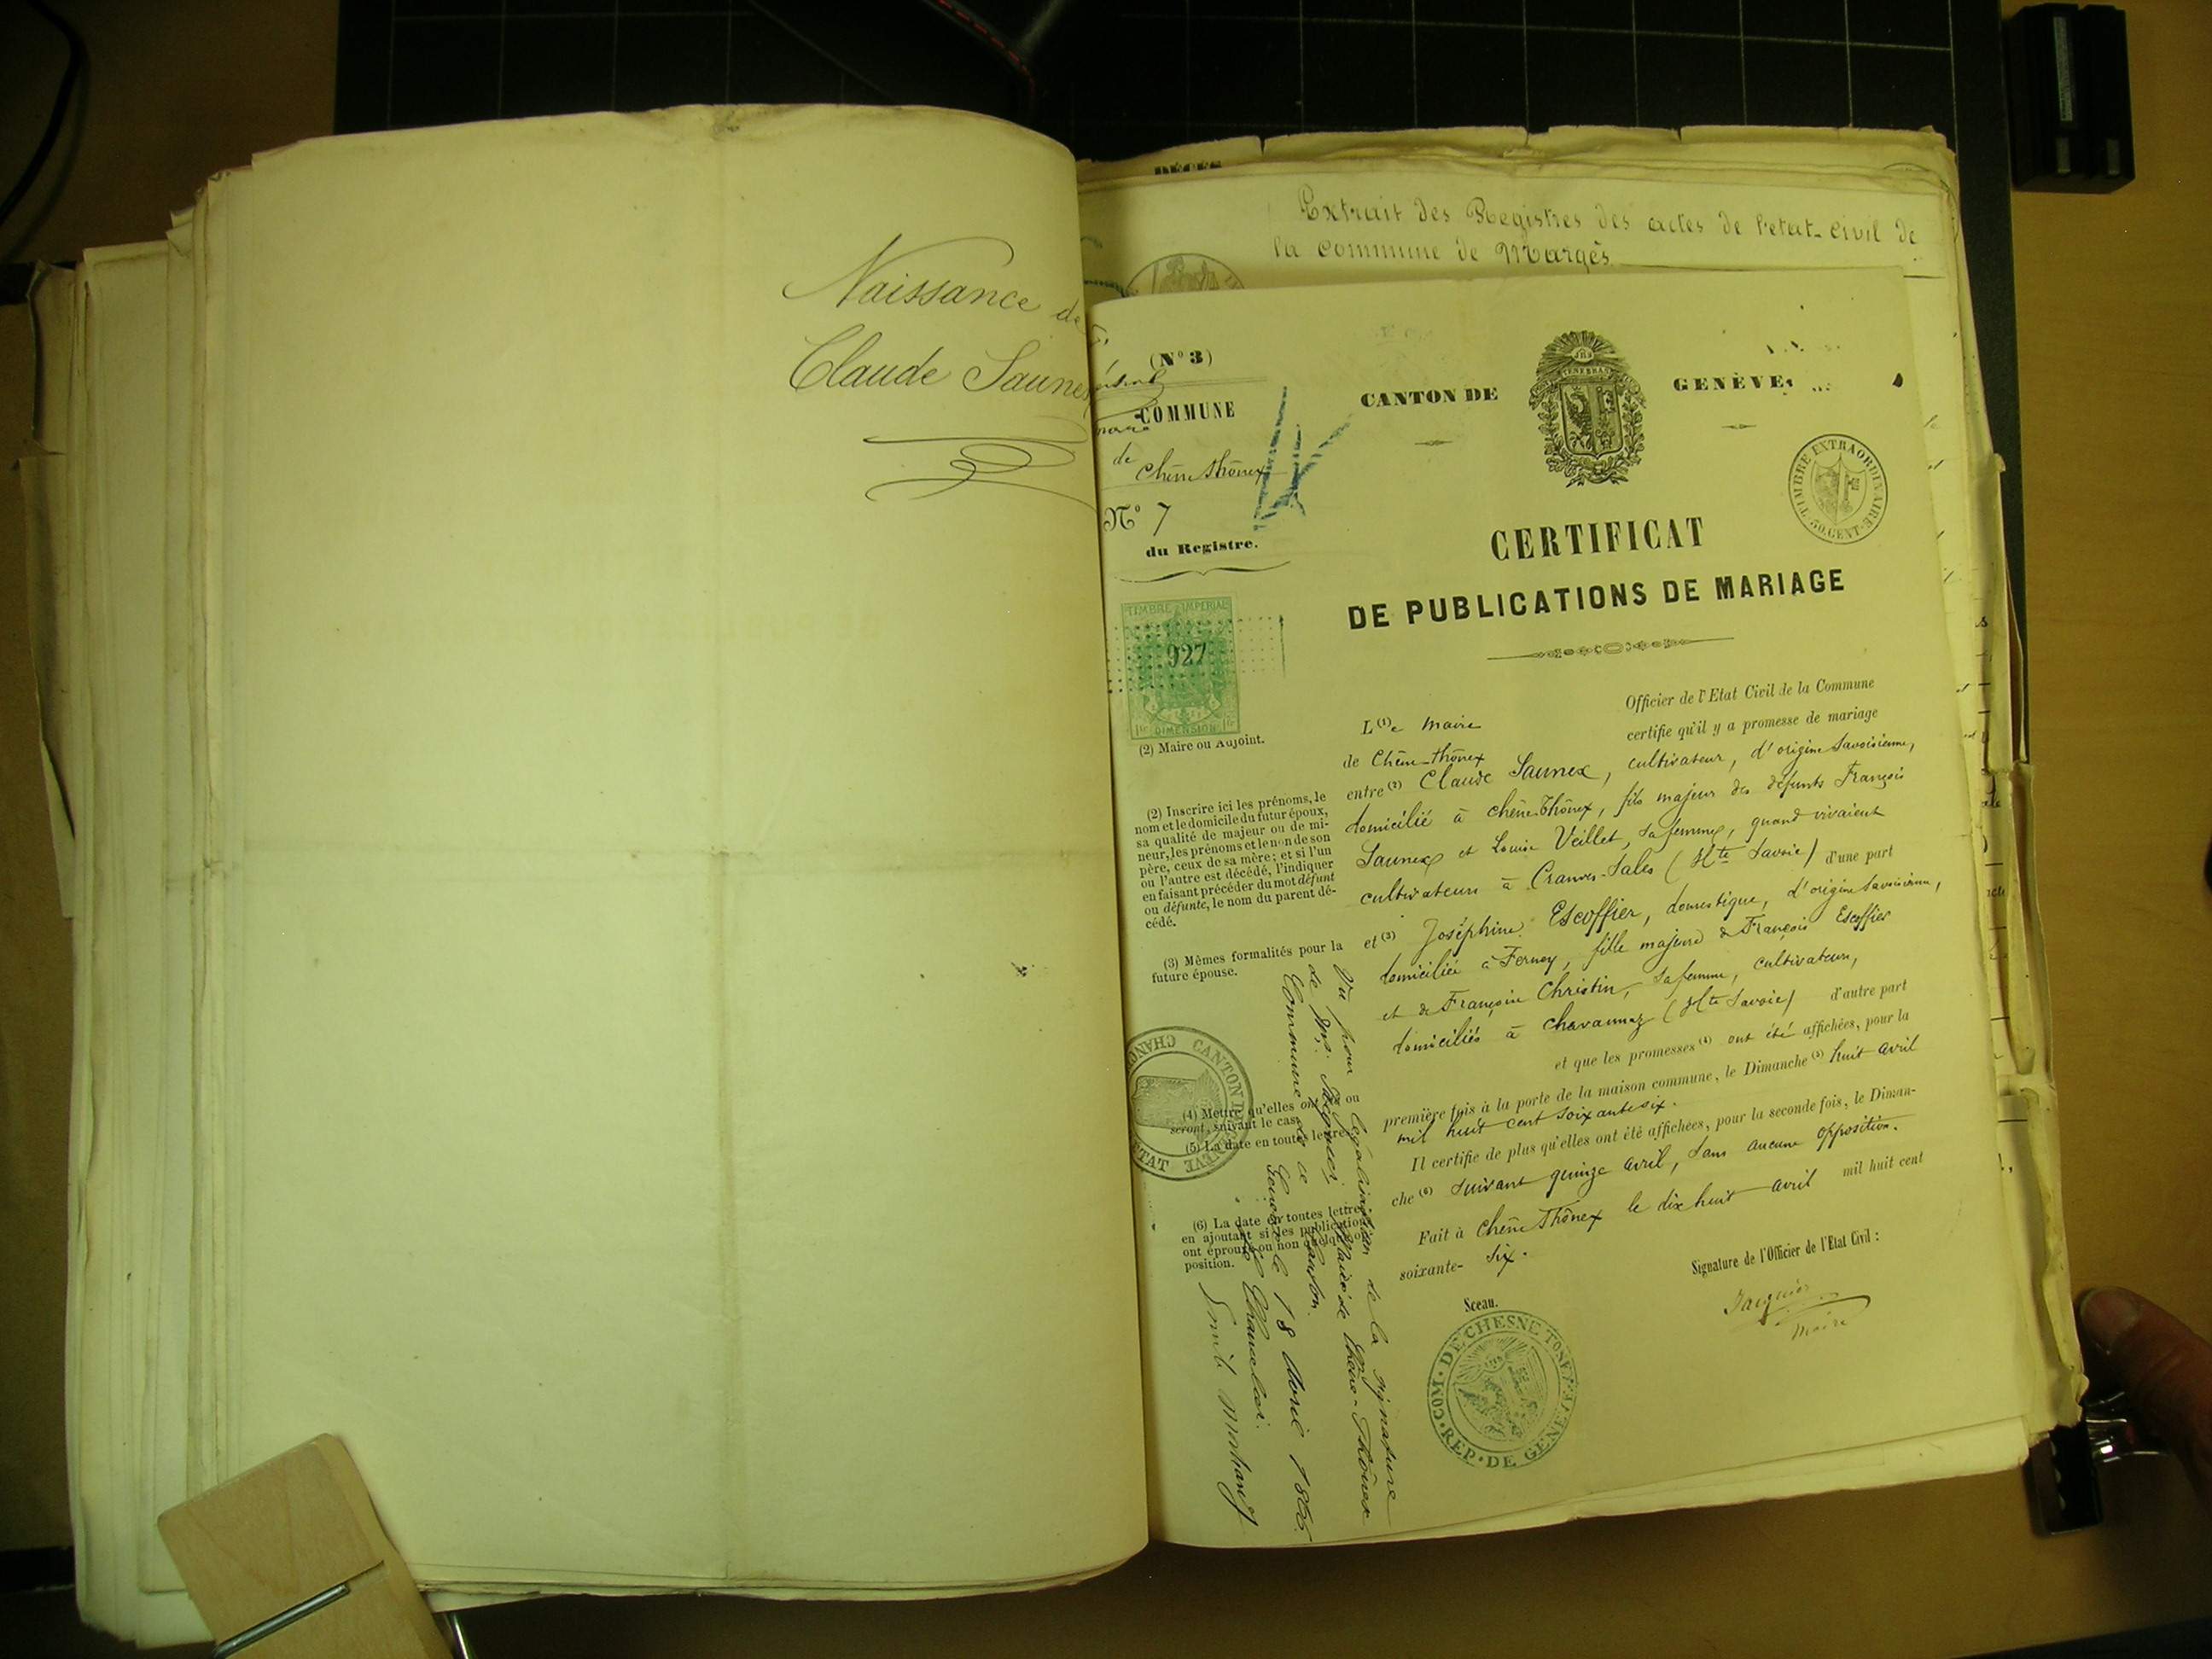 Naissance de
Claude Saunex
DÉCÈS
Extrait des Registres des actes de l'état-civil de
la commune de Margès
(N° 3)
COMMUNE
de Chêne thônex
N° 7
du Registre.
CANTON DE GENÈVE
TIMBRE EXTRAORDINAIRE
50. CENT.
CERTIFICAT
DE PUBLICATIONS DE MARIAGE
TIMBRE IMPÉRIAL
927
DIMENSION
(2) Maire ou Adjoint.
(2) Inscrire ici les prénoms, le
nom et le domicile du futur époux,
sa qualité de majeur ou de mi-
neur, les prénoms et le nom de son
père, ceux de sa mère; et si l'un
ou l'autre est décédé, l'indiquer
en faisant précéder du mot défunt
ou défunte, le nom du parent dé-
cédé.
(3) Mêmes formalités pour la
future épouse.
(4) Mettre qu'elles ont ou
seront, suivant le cas.
(5) La date en toutes lettres.
(6) La date en toutes lettres
en ajoutant si les publications
ont éprouvé ou non quelque op-
position.
L(1)e Maire Officier de l'Etat Civil de la Commune
de Chêne-thônex certifie qu'il y a promesse de mariage
entre (2) Claude Saunex, cultivateur, d'origine Savoisienne,
domicilié à Chêne-Thônex, fils majeur des défunts François
Saunex et Louise Veillet, sa femme, quand vivaient
cultivateurs à Cranves-Sales (Hte Savoie) d'une part
et (3) Joséphine Escoffier, domestique, d'origine Savoisienne,
domiciliée à Ferney, fille majeure de François Escoffier
et de Françoise Christin, sa femme, cultivateurs,
domiciliés à Chavannaz (Hte Savoie) d'autre part
et que les promesses (4) ont été affichées, pour la
première fois à la porte de la maison commune, le Dimanche (5) huit avril
mil huit cent soixante six.
Il certifie de plus qu'elles ont été affichées, pour la seconde fois, le Diman-
che (6) suivant quinze avril, sans aucune opposition.
Fait à Chêne Thônex le dix huit avril mil huit cent
soixante- six.
Signature de l'Officier de l'Etat Civil :
Maire
Sceau.
COM. DE CHESNE TONEX
REP. DE GENEVE
Vu pour légalisation de la signature
de Mr. Maire de Chêne-Thônex
Commune de ce Canton.
Genève le 18 Avril 1866.